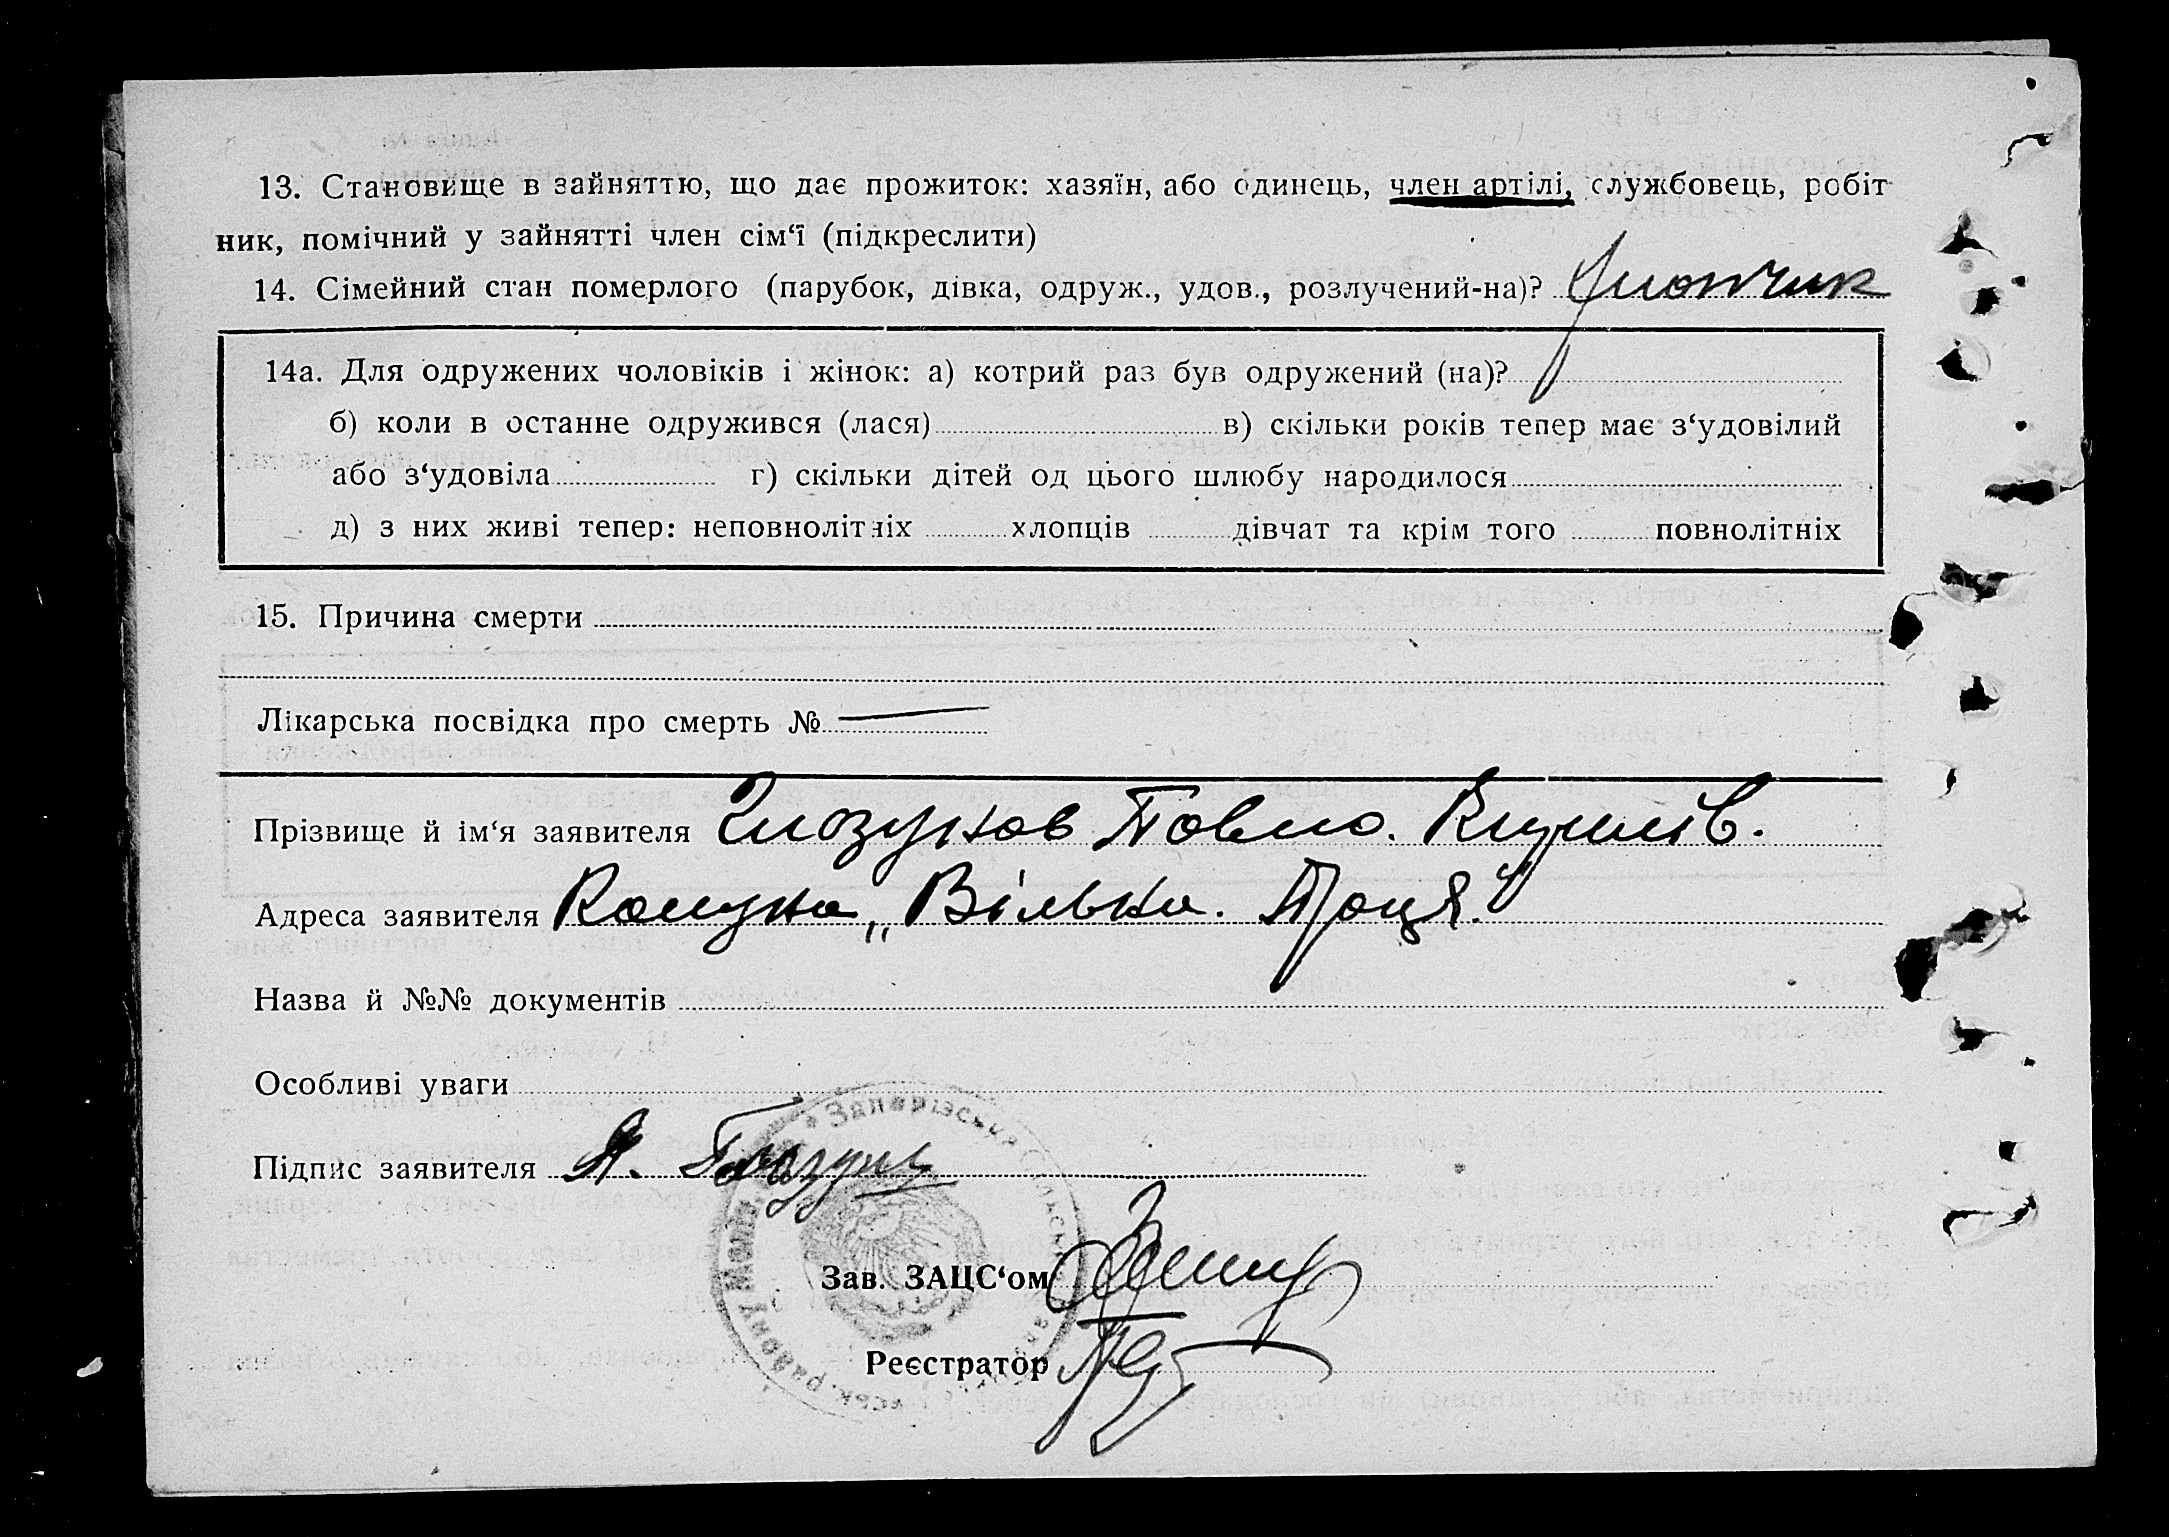 13. Становище в зайняттю, що дає прожиток: хазяїн, або одинець, член артілі, службовець, робіт
ник, помічний у зайнятті член сім‘ї (підкреслити)
14. Сімейний стан померлого (парубок, дівка, одруж., удов., розлучений-на)?
14а. Для одружених чоловіків і жінок: а) котрий раз був одружений (на)?
б) коли в останне одружився (лася) в) скільки років тепер має з‘удовілий
або з‘удовіла г) скільки дітей од цього шлюбу народилося
д) з них живі тепер: неповнолітніх хлопців дівчат та крім того повнолітніх
15. Причина смерти
Лікарська посвідка про смерть №
Прізвище й ім‘я заявителя Глозунов Павло.
Адреса заявителя Комуна „Вільна. Праця“
Назва й №№ документів
Особливі уваги
Підпис заявителя
Зав. ЗАЦС‘ом
Реєстратор